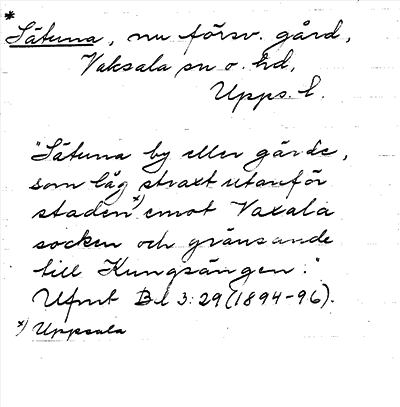 *
Sätuna, nu försv. gård,
Vaksala sn o. hd,
Upps. l.
"Sätuna by eller gärde,
som låg straxt utanför
staden x) emot Vaxala
socken och gränsande
till Kungsängen."
Ufmt Bd 3:29 (1894-96).
x) Uppsala